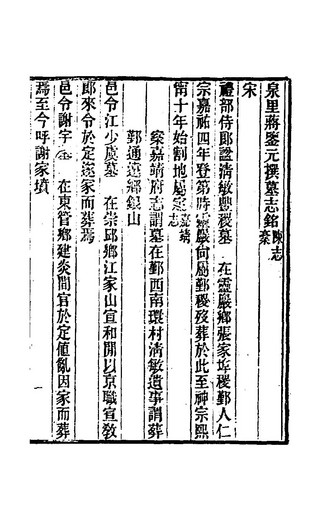 泉里蔣鋻元撰墓志銘陳志稾
宋
禮部侍郎諡清敏豐稷墓　在靈巖鄉張家垮稷鄞人仁
宗嘉祐四年登第時靈巖尙屬鄞稷歿葬於此至神宗熙
甯十年始割地屬定嘉靖志
案嘉靖府志謂墓在鄞西南環村清敏遺事謂葬
鄞通遠鄉銀山
邑令江少虞墓　在崇邱鄉江家山宣和間以京職宣教
郎來令於定遂家而葬焉
邑令謝宇墓　在東管鄉建炎間官於定値亂因家而葬
焉至今呼謝家墳